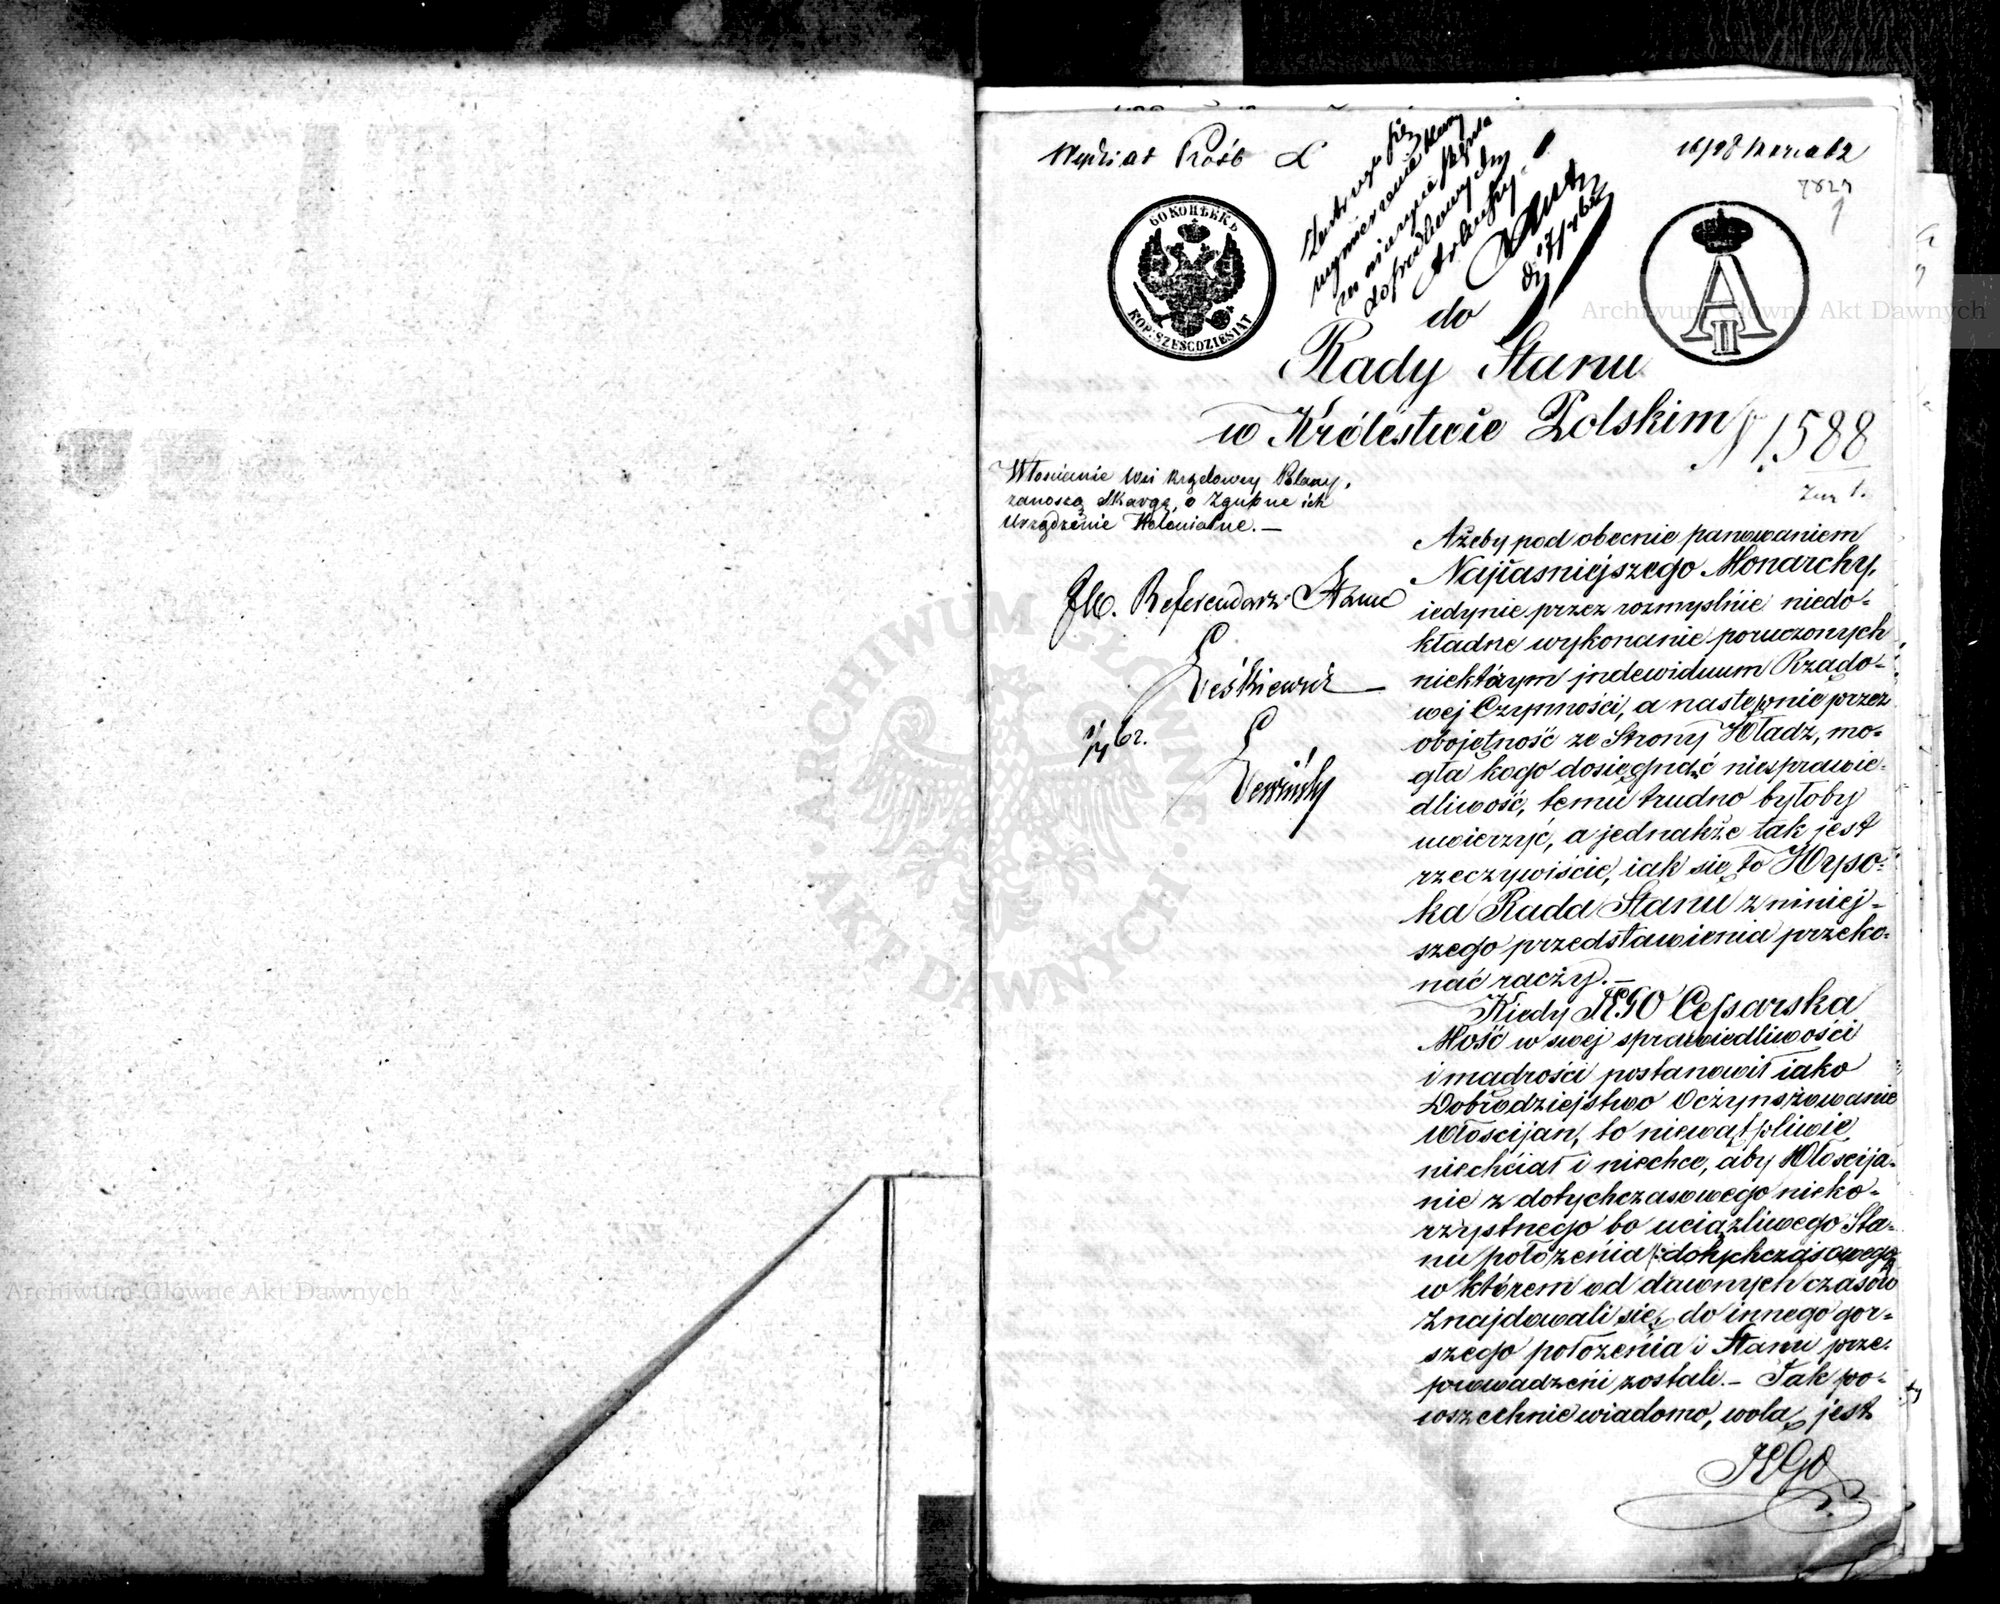 Wydział Próśb
60 КОПѢЕКЪ
KOP: SZEŚĆDZIESIĄT
A II
do
Rady Stanu
w Królestwie Polskim
N 1588
Włościanie Wsi Rządowey
zanoszą Skargę, o Zgubne ich
Urządzenie Kolonialne. —
Referendarz Stanu
Ażeby pod obecnie panowaniem
Najiaśniejszego Monarchy,
iedynie przez rozmyślnie niedo-
kładne wykonanie poruczonych
niektórym indewiduum Rządo-
wej Czynności, a następnie przez
obojętność ze Strony Władz, mo-
gła kogo dosięgnąć niesprawie-
dliwość, temu trudno byłoby
uwierzyć, a jednakże tak jest
rzeczywiście, iak się to Wyso-
ka Rada Stanu z niniej-
szego przedstawienia przeko-
nać raczy. —
Kiedy JEGO Cesarska
Mość w swej sprawiedliwości
i mądrości postanowił iako
Dobrodziejstwo Oczynszowanie
Włościjan, to niewątpliwie
niechciał i niechce, aby Włościja-
nie z dotychczasowego nieko-
rzystnego bo uciążliwego Sta-
nu położenia dotychczasowego
w którem od dawnych czasów
znajdowali się, do innego gor-
szego położenia i Stanu prze-
prowadzeni zostali. — Tak po-
wszechnie wiadomo, wolą jest
JEGO
Archiwum Główne Akt Dawnych
ARCHIWUM GŁÓWNE AKT DAWNYCH
Archiwum Główne Akt Dawnych